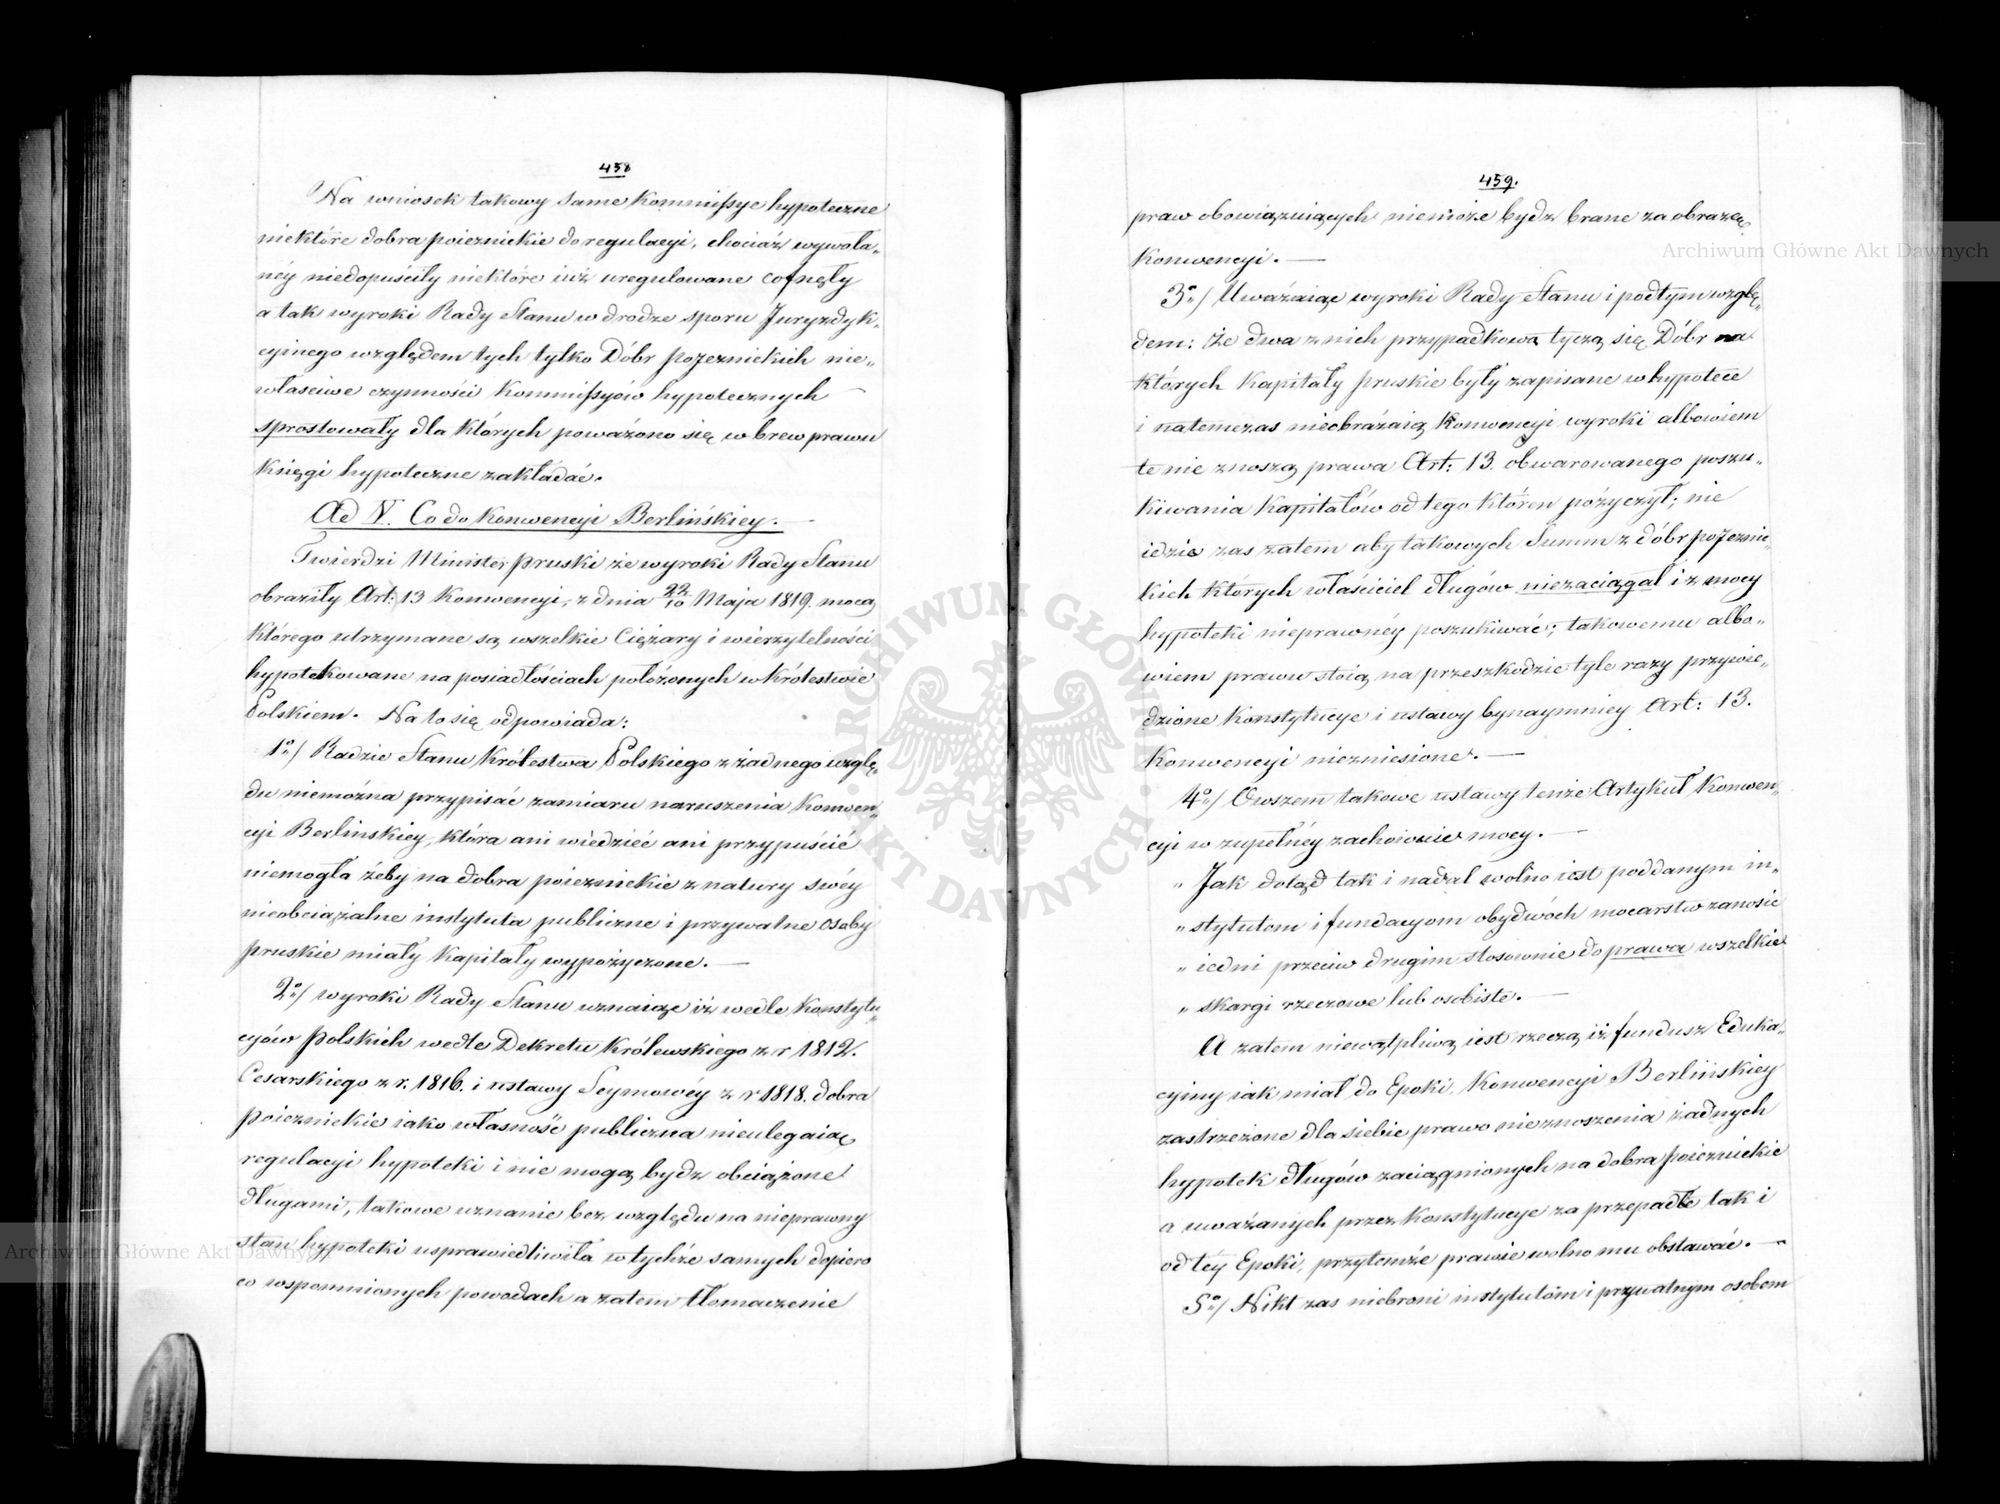 458
Na wniosek takowy same Kommissye hypoteczne
niektóre dobra poieznickie do regulacyi, chociaż wywoła„
néy niedopuściły niektóre iuż uregulowane cofnęły
a tak wyroki Rady Stanu w drodze sporu Juryzdyk„
cyinego względem tych tylko Dóbr pojeznickich nie„
właściwe czynności Kommissyów hypotecznych
sprostowały dla których poważono się wbrew prawu
Księgi hypoteczne zakładać.
Ad V. Co do Konwencyi Berlińskiey.
Twierdzi Minister pruski że wyroki Rady Stanu
obraziły Art: 13 Konwencyi, z dnia 22/10 Maja 1819. mocą
którego utrzymane są wszelkie Ciężary i wierzytelności
hypotekowane na posiadłościach położonych w Królestwie
Polskiem. Na to się odpowiada:
1º/ Radzie Stanu Królestwa Polskiego z żadnego wzglę„
du niemożna przypisać zamiaru naruszenia Konwen„
cyi Berlinskiey, która ani wiedzieć ani przypuścić
niemogła żeby na dobra poieznickie z natury swéy
nieobciążalne instytuta publiczne i przywatne osoby
pruskie miały Kapitały wypożyczone. —
2º/ wyroki Rady Stanu uznaiąc iż wedle Konstytu„
cyów polskich wedle Dekretu Królewskiego z r 1812.
Cesarskiego z r. 1816. i ustawy Seymowéy z r 1818. dobra
poieznickie iako własność publiczna nieulegaią
regulacyi hypoteki i nie mogą bydz obciążone
długami, takowe uznanie bez względu na nieprawny
stan hypoteki usprawiedliwiła w tychże samych dopiero
co wspomnionych powodach a zatem tłomaczenie
459.
praw obowiązuiących niemoże bydz brane za obrazę
Konwencyi. —
3º/ Uważaiąc wyroki Rady Stanu i pod tym wzglę„
dem: że dwa z nich przypadkowo tyczą się Dóbr na
których Kapitały pruskie były zapisane w hypotece
i natemczas nieobrażaią Konwencyi wyroki albowiem
te nie znoszą prawa Art: 13. obwarowanego poszu„
kiwania Kapitałów od tego któren pożyczył; nie
idzie zas zatem aby takowych Summ z dóbr pojeznic„
kich których właściciel długów niezaciągał i z mocy
hypoteki nieprawnéy poszukiwać; takowemu albo„
wiem prawu stoią na przeszkodzie tyle razy przywie„
dzione Konstytucye i ustawy bynaymniey Art: 13.
Konwencyi niezniesione. —
4º/ Owszem takowe ustawy tenże Artykuł Konwen„
cyi w zupełnéy zachowuie mocy. —
„ Jak dotąd tak i nadal wolno iest poddanym in„
„ stytutom i fundacyom obydwóch mocarstw zanosic
„ iedni przeciw drugim stosownie do prawa wszelkie
„ skargi rzeczowe lub osobiste. —
A zatem niewątpliwą iest rzeczą iż fundusz Eduka„
cyiny iak miał do Epoki, Konwencyi Berlińskiey
zastrzeżone dla siebie prawo nieznoszenia żadnych
hypotek długów zaciągnionych na dobra poieznickie
a uważanych przez Konstytucye za przepadłe tak i
od tey Epoki, przytemże prawie wolno mu obstawać. —
5º/ Nikt zas niebroni instytutóm i prywatnym osobom
Archiwum Główne Akt Dawnych
Archiwum Główne Akt Dawnych
ARCHIWUM GŁÓWNE AKT DAWNYCH